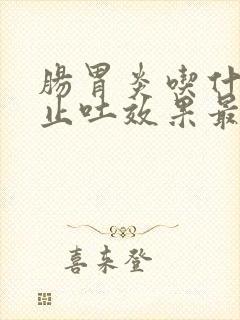 腸胃炎喫什
止吐效果最
喜来登